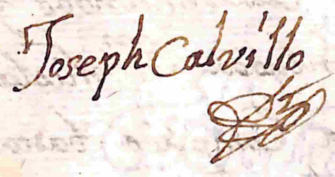 Joseph Calvillo